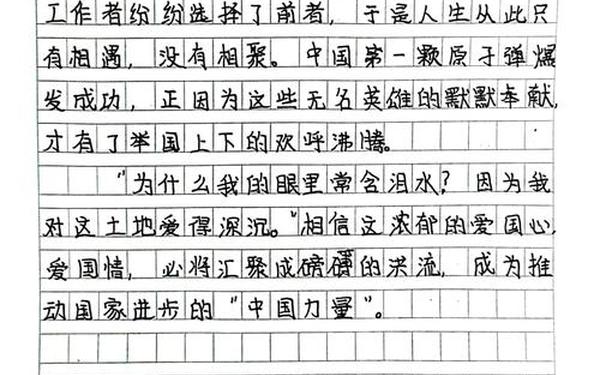 工作者纷纷选择了前者，于是人生从此只
有相遇，没有相聚。中国第一颗原子弹爆
发成功，正因为这些无名英雄的默默奉献，
才有了举国上下的欢呼沸腾。
“为什么我的眼里常含泪水？因为我
对这土地爱得深沉。”相信这浓郁的爱国心，
爱国情，必将汇聚成磅礴的洪流，成为推
动国家进步的“中国力量”。